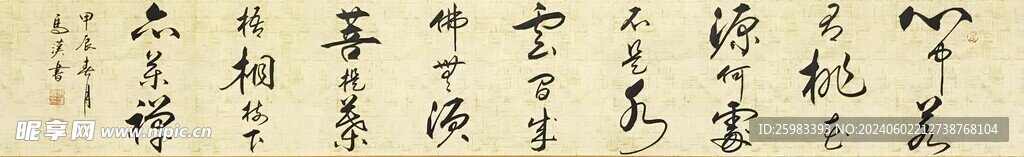 心中若
有桃花
源何處
不是水
雲間成
佛無須
菩提葉
梧桐樹下
亦參禪
甲辰春月
馬漢書
昵享网 www.nipic.cn
ID:25983393 NO:20240602212738768104